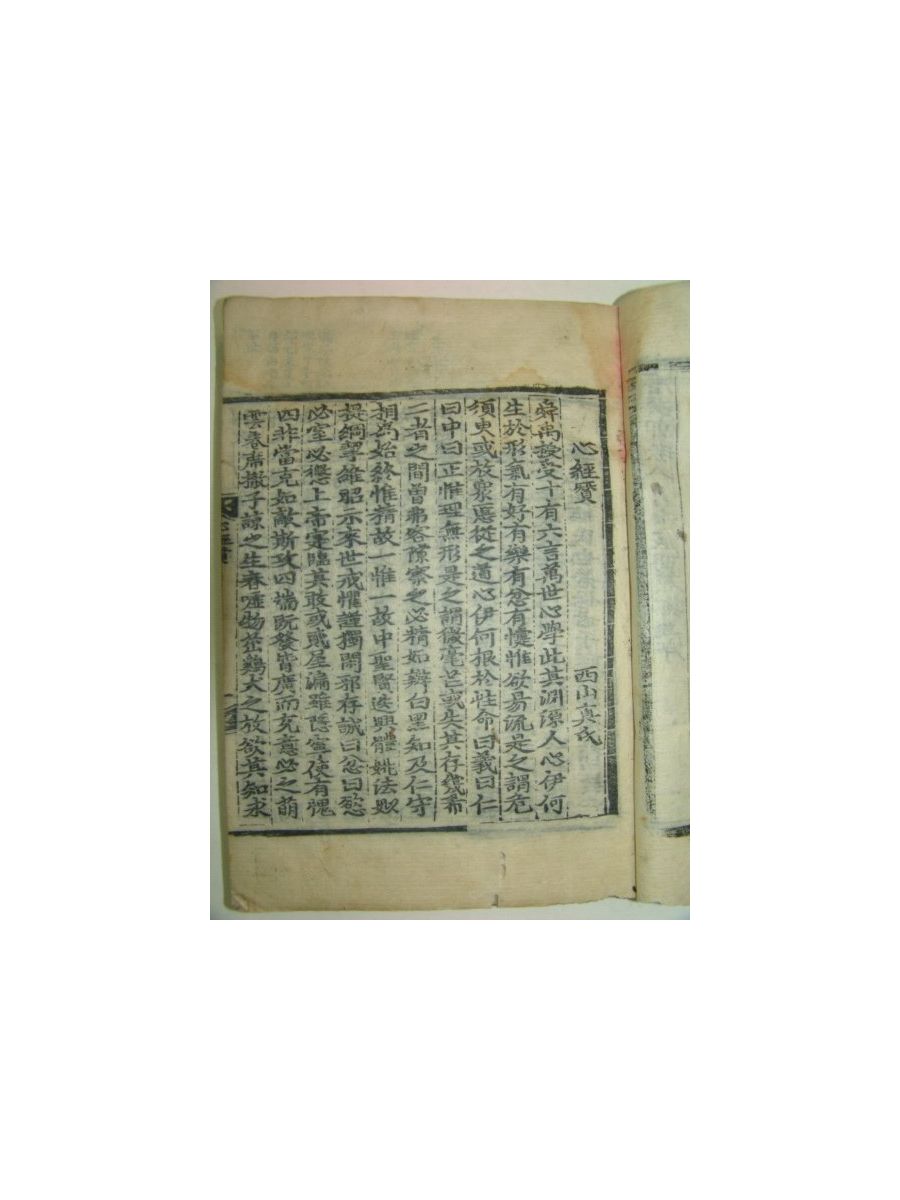 心經贊
西山真氏
舜禹授受十有六言萬世心學此其淵源人心伊何
生於形氣有好有樂有忿有懥惟欲易流是之謂危
須臾或放衆慝從之道心伊何根於性命曰義曰仁
曰中曰正惟理無形是之謂微毫芒或失其存幾希
二者之間曽弗容隙察之必精如辨白黑知及仁守
相爲始終惟精故一惟一故中聖賢迭興體姚法姒
提綱挈維昭示來世戒懼謹獨閑邪存誠曰忿曰慾
必窒必懲上帝寔臨其敢或貳屋漏雖隱寧使有愧
四非當克如敵斯攻四端旣發皆廣而充意必之萌
雲卷席撤子諒之生春噓物茁鷄犬之放欲其知求